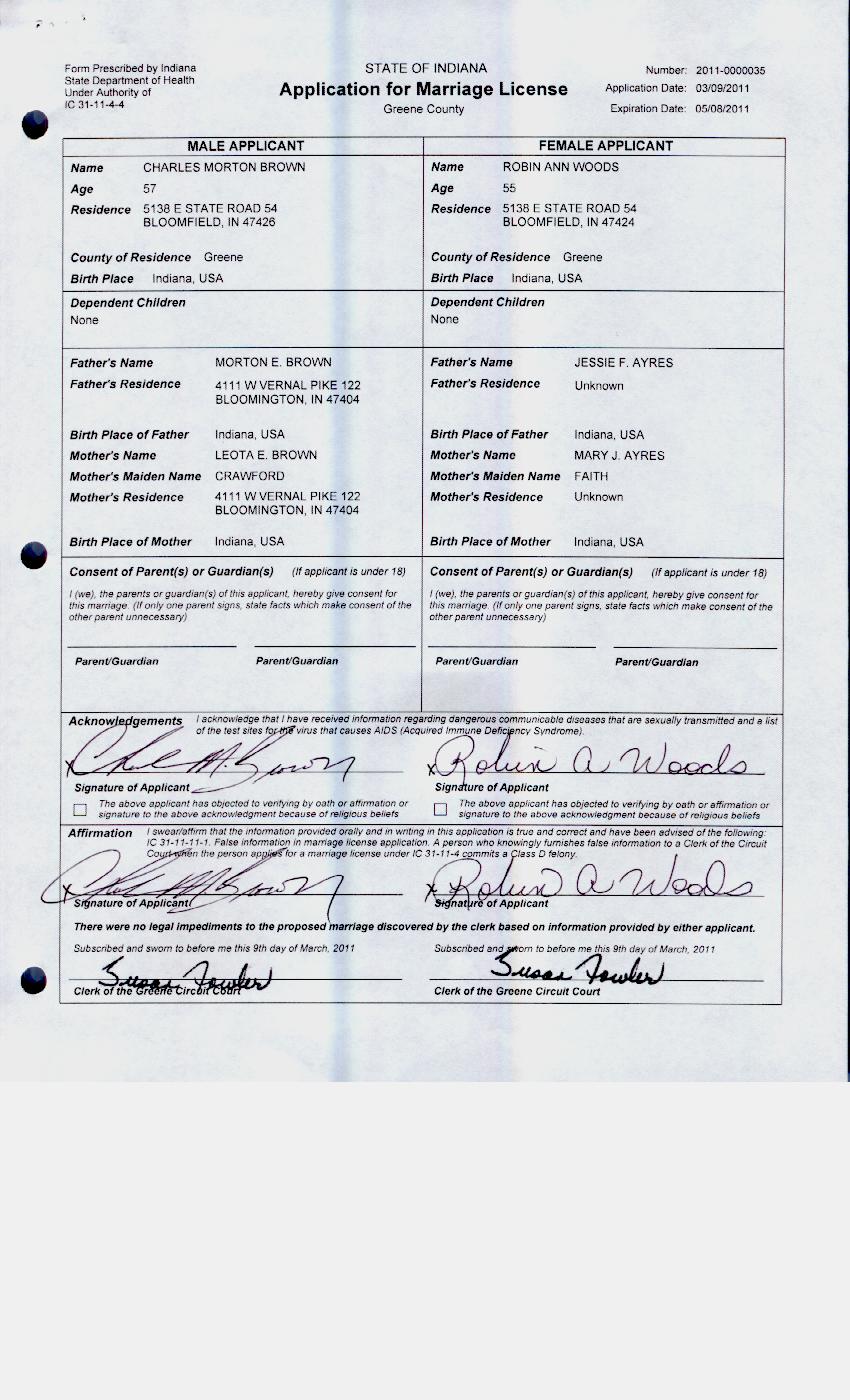 Form Prescribed by Indiana
State Department of Health
Under Authority of
IC 31-11-4-4
STATE OF INDIANA
Application for Marriage License
Greene County
Number: 2011-0000035
Application Date: 03/09/2011
Expiration Date: 05/08/2011
MALE APPLICANT
Name CHARLES MORTON BROWN
Age 57
Residence 5138 E STATE ROAD 54
BLOOMFIELD, IN 47426
County of Residence Greene
Birth Place Indiana, USA
Dependent Children
None
Father's Name MORTON E. BROWN
Father's Residence 4111 W VERNAL PIKE 122
BLOOMINGTON, IN 47404
Birth Place of Father Indiana, USA
Mother's Name LEOTA E. BROWN
Mother's Maiden Name CRAWFORD
Mother's Residence 4111 W VERNAL PIKE 122
BLOOMINGTON, IN 47404
Birth Place of Mother Indiana, USA
Consent of Parent(s) or Guardian(s) (If applicant is under 18)
I (we), the parents or guardian(s) of this applicant, hereby give consent for
this marriage. (If only one parent signs, state facts which make consent of the
other parent unnecessary)
Parent/Guardian Parent/Guardian
FEMALE APPLICANT
Name ROBIN ANN WOODS
Age 55
Residence 5138 E STATE ROAD 54
BLOOMFIELD, IN 47424
County of Residence Greene
Birth Place Indiana, USA
Dependent Children
None
Father's Name JESSIE F. AYRES
Father's Residence Unknown
Birth Place of Father Indiana, USA
Mother's Name MARY J. AYRES
Mother's Maiden Name FAITH
Mother's Residence Unknown
Birth Place of Mother Indiana, USA
Consent of Parent(s) or Guardian(s) (If applicant is under 18)
I (we), the parents or guardian(s) of this applicant, hereby give consent for
this marriage. (If only one parent signs, state facts which make consent of the
other parent unnecessary)
Parent/Guardian Parent/Guardian
Acknowledgements I acknowledge that I have received information regarding dangerous communicable diseases that are sexually transmitted and a list
of the test sites for the virus that causes AIDS (Acquired Immune Deficiency Syndrome).
X Chal M. Brown X Robin A Woods
Signature of Applicant Signature of Applicant
The above applicant has objected to verifying by oath or affirmation or
signature to the above acknowledgment because of religious beliefs
The above applicant has objected to verifying by oath or affirmation or
signature to the above acknowledgment because of religious beliefs
Affirmation I swear/affirm that the information provided orally and in writing in this application is true and correct and have been advised of the following:
IC 31-11-11-1. False information in marriage license application. A person who knowingly furnishes false information to a Clerk of the Circuit
Court when the person applies for a marriage license under IC 31-11-4 commits a Class D felony.
X Chal M. Brown X Robin A Woods
Signature of Applicant Signature of Applicant
There were no legal impediments to the proposed marriage discovered by the clerk based on information provided by either applicant.
Subscribed and sworn to before me this 9th day of March, 2011 Subscribed and sworn to before me this 9th day of March, 2011
Susan Fowler Susan Fowler
Clerk of the Greene Circuit Court Clerk of the Greene Circuit Court